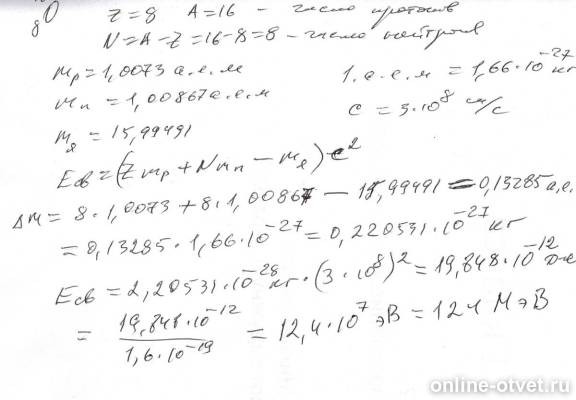 ₈O Z = 8 A = 16 - число протонов
N = A - Z = 16 - 8 = 8 - число нейтронов
mₚ = 1,0073 а.е.м 1.а.е.м = 1,66·10⁻²⁷ кг
mₙ = 1,00867 а.е.м c = 3·10⁸ м/с
mя = 15,99491
Eсв = (Zmp + Nmn - mя)·c²
ΔM = 8·1,0073 + 8·1,00867 - 15,99491 = 0,13285 а.е.
= 0,13285·1,66·10⁻²⁷ = 0,220531·10⁻²⁷ кг
Eсв = 2,20531·10⁻²⁸ кг·(3·10⁸)² = 19,848·10⁻¹² Дж
= 19,848·10⁻¹² / 1,6·10⁻¹⁹ = 12,4·10⁷ эВ = 124 МэВ
online-otvet.ru